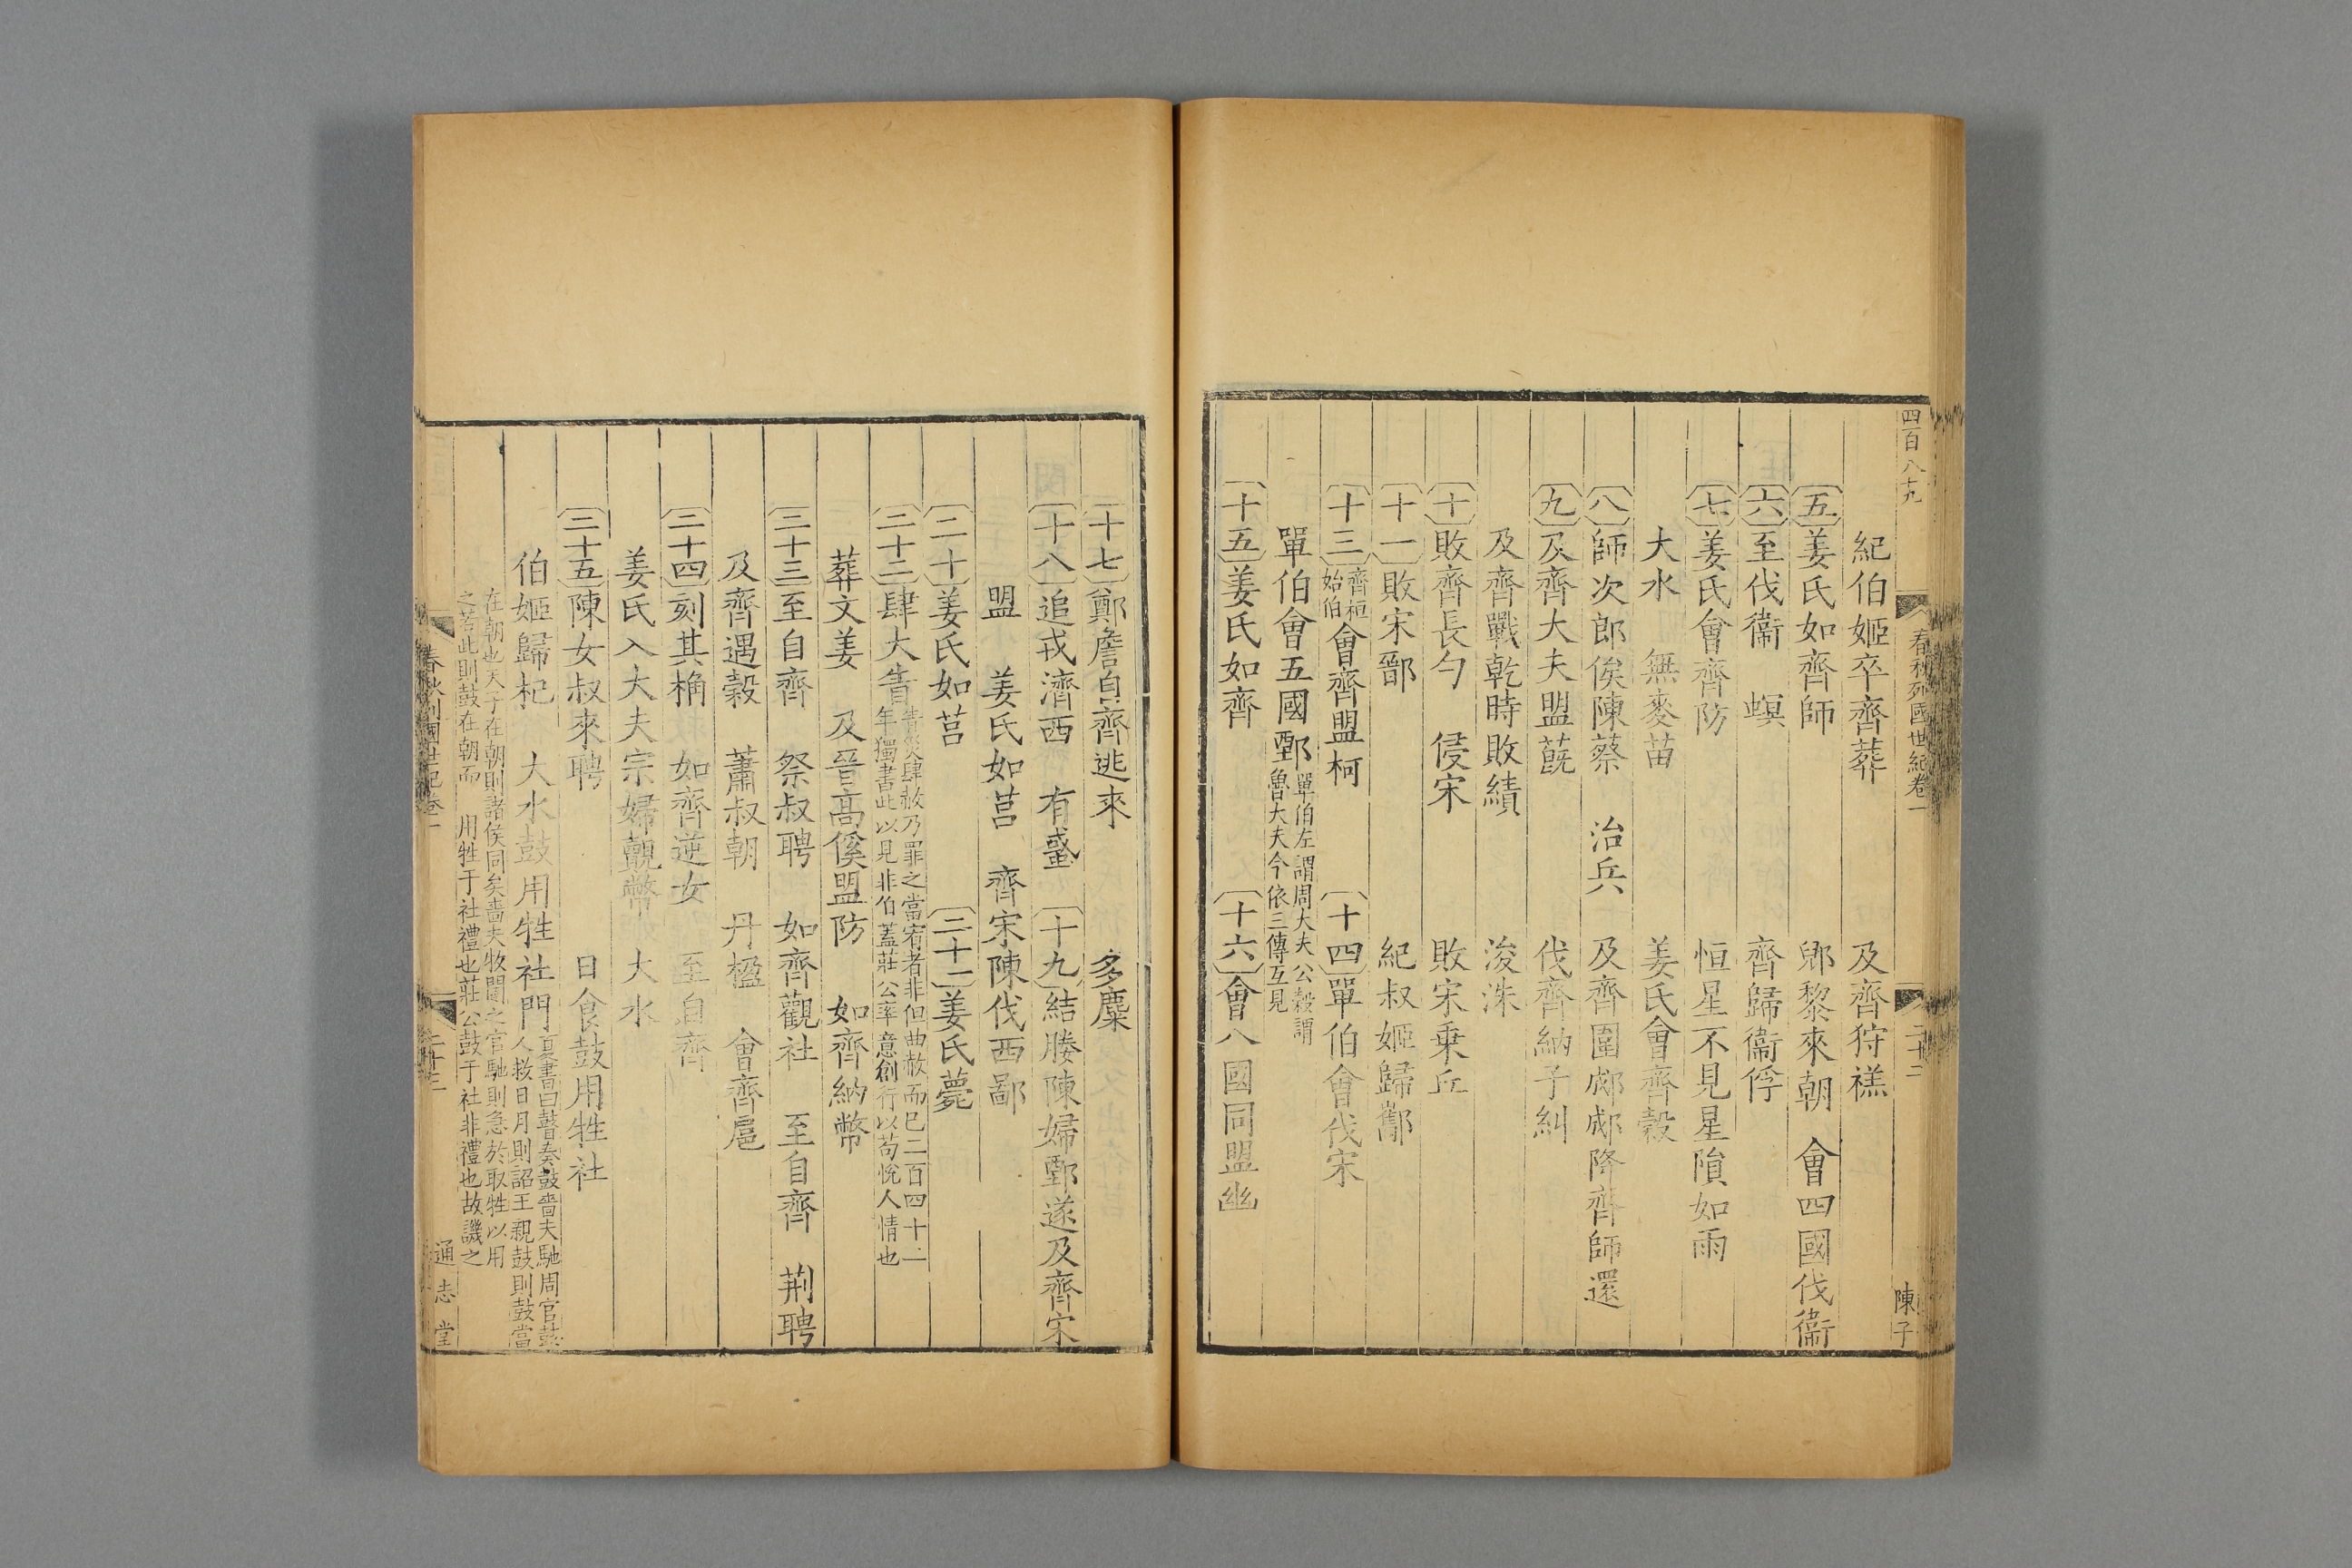 四百八十九
春秋列國世紀卷一
二十二
陳子
紀伯姬卒齊葬　及齊狩禚
五姜氏如齊師　郳黎來朝　會四國伐衞
六至伐衞　螟　齊歸衞俘
七姜氏會齊防　恒星不見星隕如雨
大水　無麥苗　姜氏會齊穀
八師次郎俟陳蔡　治兵　及齊圍郕郕降齊師還
九及齊大夫盟蔇　伐齊納子糾
及齊戰乾時敗績　浚洙
十敗齊長勺　侵宋　敗宋乗丘
十一敗宋鄑　紀叔姬歸酅
十三齊桓始伯會齊盟柯　十四單伯會伐宋
單伯會五國鄄單伯左謂周大夫公穀謂魯大夫今依三傳互見
十五姜氏如齊　十六會八國同盟幽
十七鄭詹自齊逃來　多麋
十八追戎濟西　有蜮　十九結媵陳婦鄄遂及齊宋
盟　姜氏如莒　齊宋陳伐西鄙
二十姜氏如莒　二十一姜氏薨
二十二肆大眚眚災肆赦乃罪之當宥者非但曲赦而已二百四十二年獨書此以見非伯蓋莊公率意創行以苟悅人情也
葬文姜　及晉高傒盟防　如齊納幣
二十三至自齊　祭叔聘　如齊觀社　至自齊　荆聘
及齊遇穀　蕭叔朝　丹楹　會齊扈
二十四刻其桷　如齊逆女　至自齊
姜氏入大夫宗婦覿幣　大水
二十五陳女叔來聘　日食鼓用牲社
伯姬歸杞　大水鼓用牲社門夏書曰瞽奏鼓嗇夫馳周官鼓人救日月則詔王親鼓則鼓當
在朝也天子在朝則諸侯同矣嗇夫牧閽之官馳則急於取牲以用之若此則鼓在朝而　用牲于社禮也莊公鼓于社非禮也故譏之
春秋列國世紀卷一
二十二
通志堂